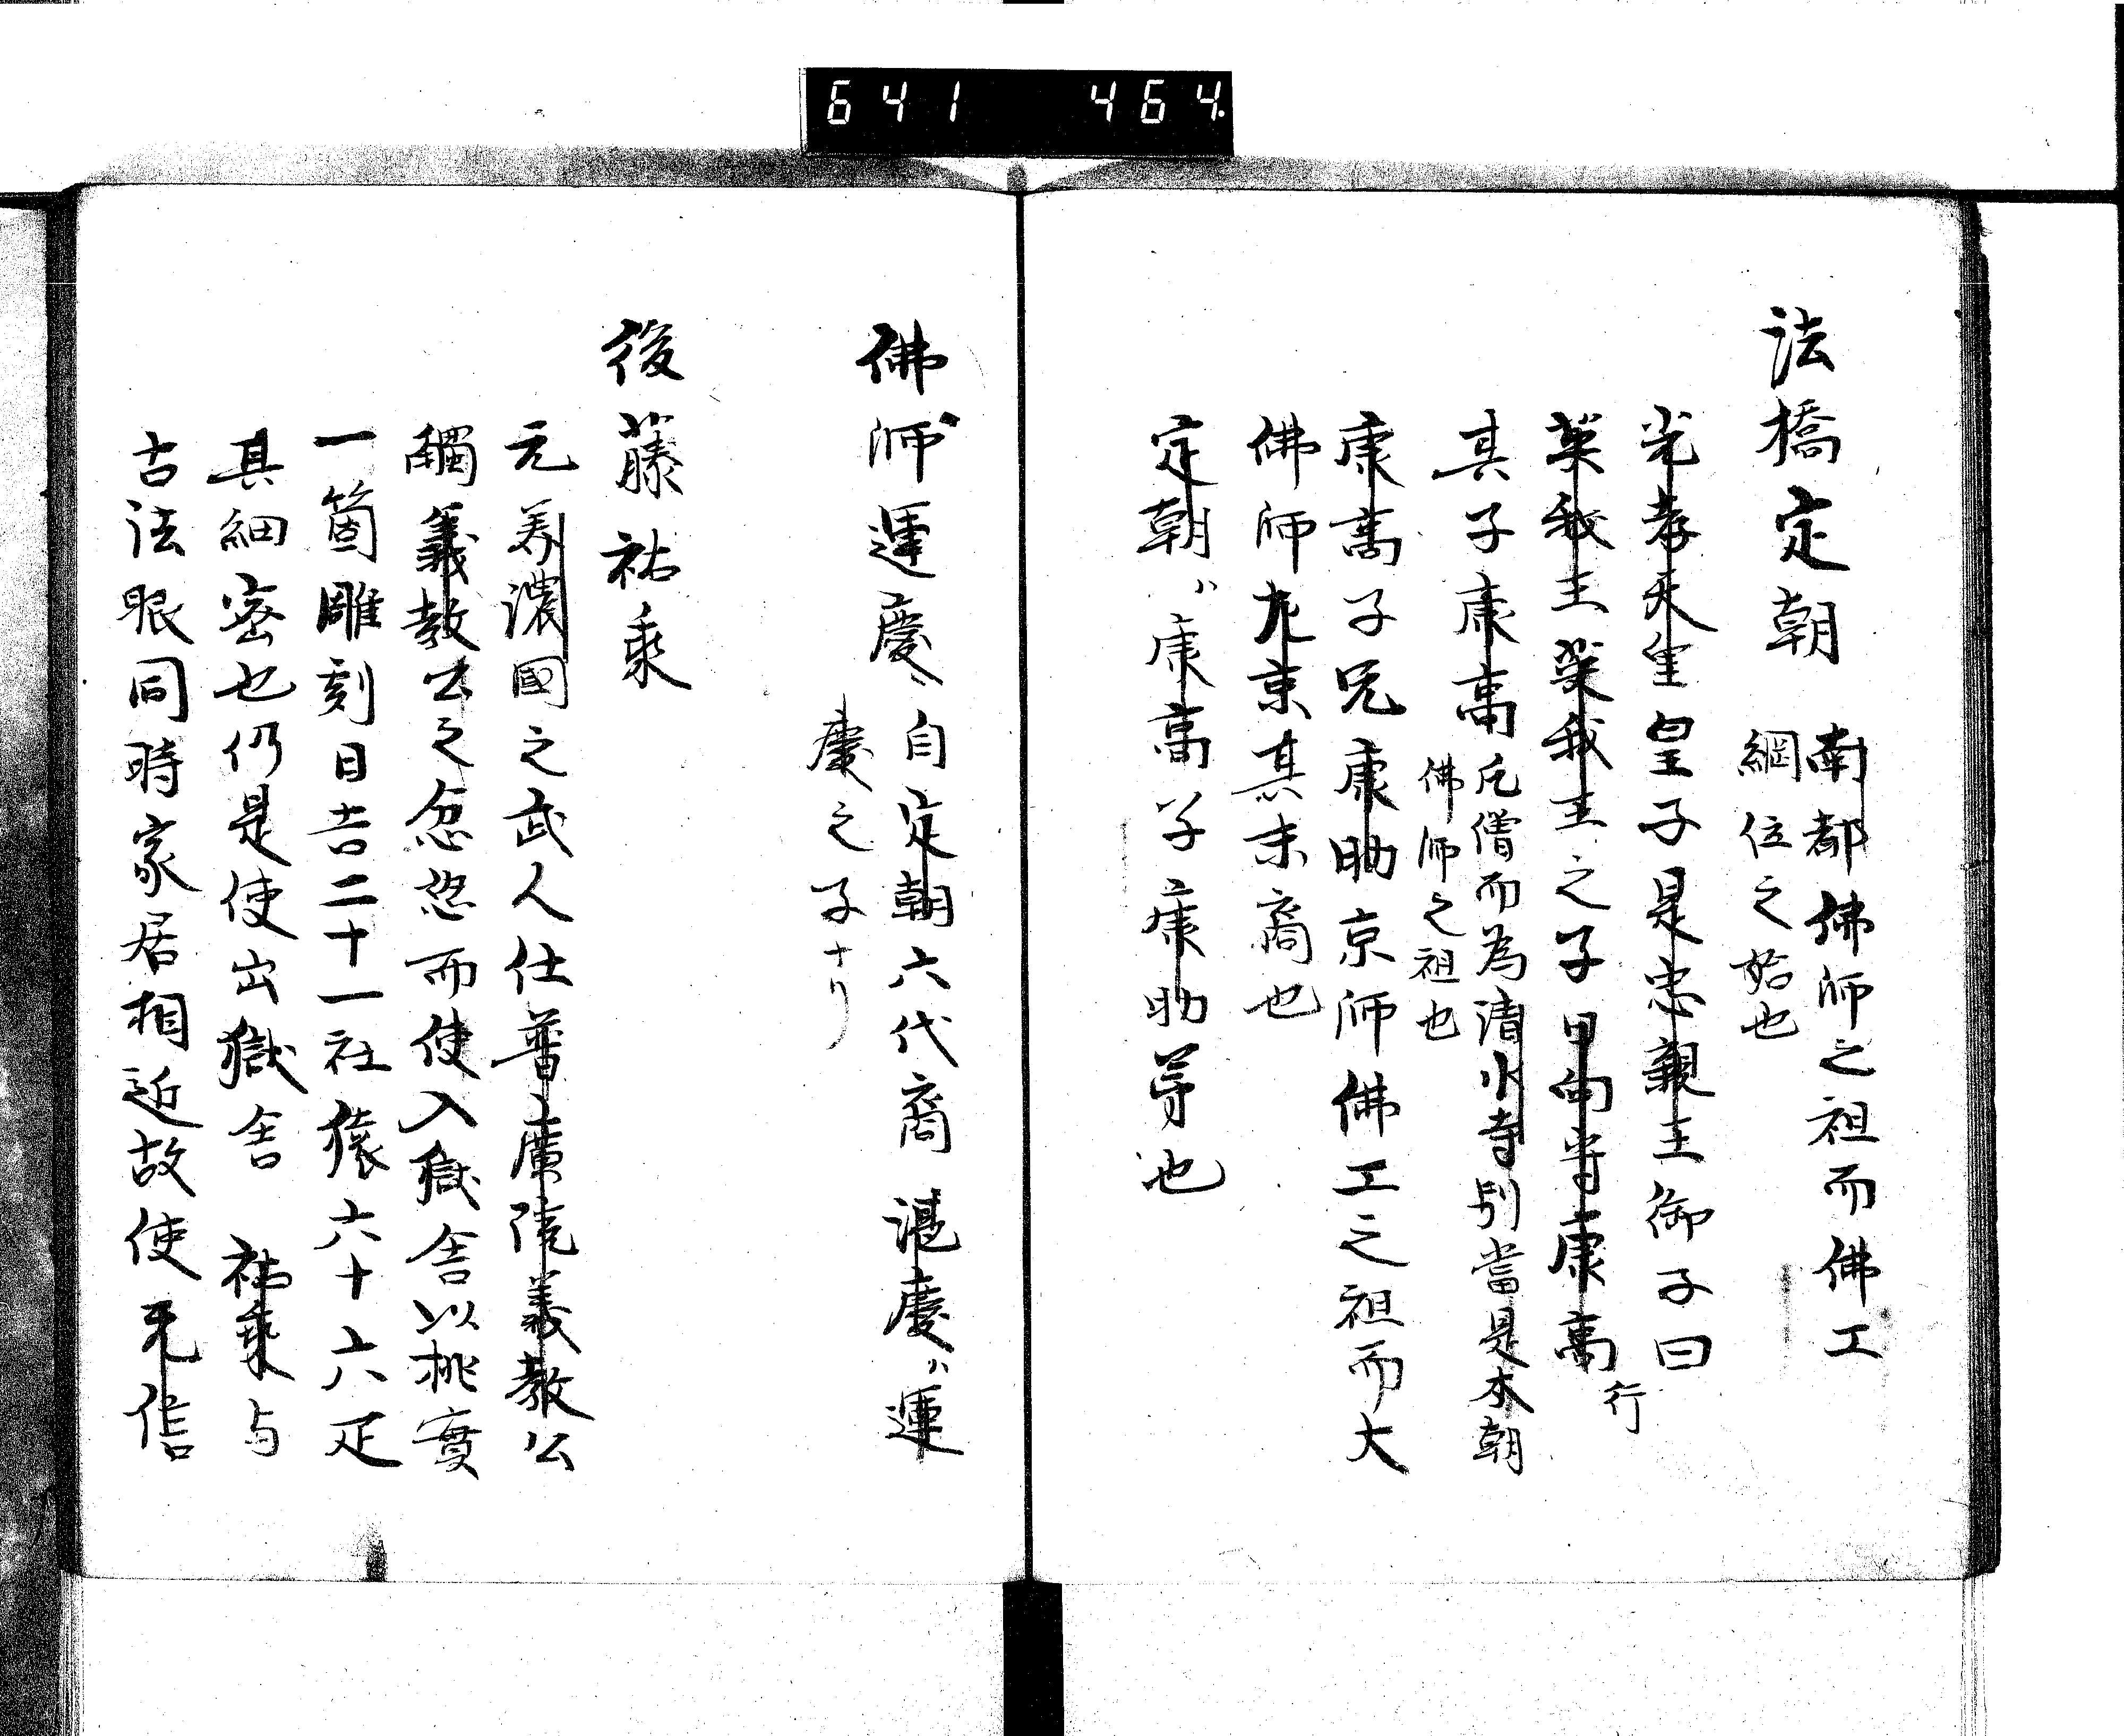 641 464.
法橋定朝
南都佛師之祖而佛工
綱位之始也
光孝天皇皇子是忠親王御子曰
我王我王之子曰尚康尚行
其子康尚
凡僧而為清水寺別當是本朝
佛師之祖也
康尚子兄康助京師佛工之祖而大
佛師左京其末裔也
定朝ハ康尚子康助等也
佛師運慶
自定朝六代裔湛慶ハ運
慶之子ナリ
後藤祐乘
元美濃國之武人仕普廣院義教公
義教公之忿恣而使入獄舍以桃實
一箇雕刻日吉二十一社猿六十六疋
其細密也仍是使出獄舍祐乘与
古法眼同時家居相近故使元信